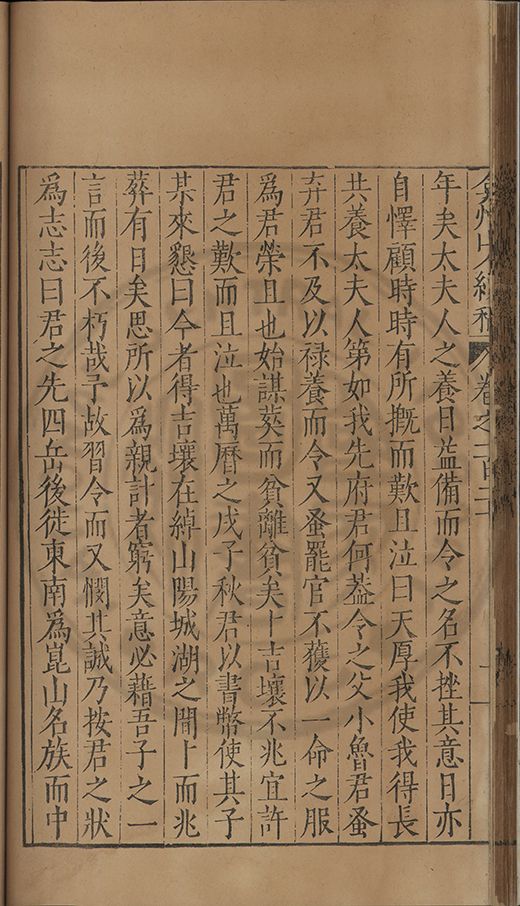 弇州山人續稿 卷之一百二十
年矣太夫人之養日益備而令之名不挫其意日亦
自懌顧時時有所摡而歎且泣曰天厚我使我得長
共養太夫人第如我先府君何葢令之父小魯君蚤
弃君不及以禄養而令又蚤罷官不獲以一命之服
爲君榮且也始謀葬而貧離貧矣卜吉壤不兆宜許
君之歎而且泣也萬曆之戊子秋君以書幣使其子
某來懇曰今者得吉壤在綽山陽城湖之間卜而兆
葬有日矣思所以爲親計者窮矣意必藉吾子之一
言而後不朽哉予故習令而又憫其誠乃按君之狀
爲志志曰君之先四岳後徙東南爲崑山名族而中